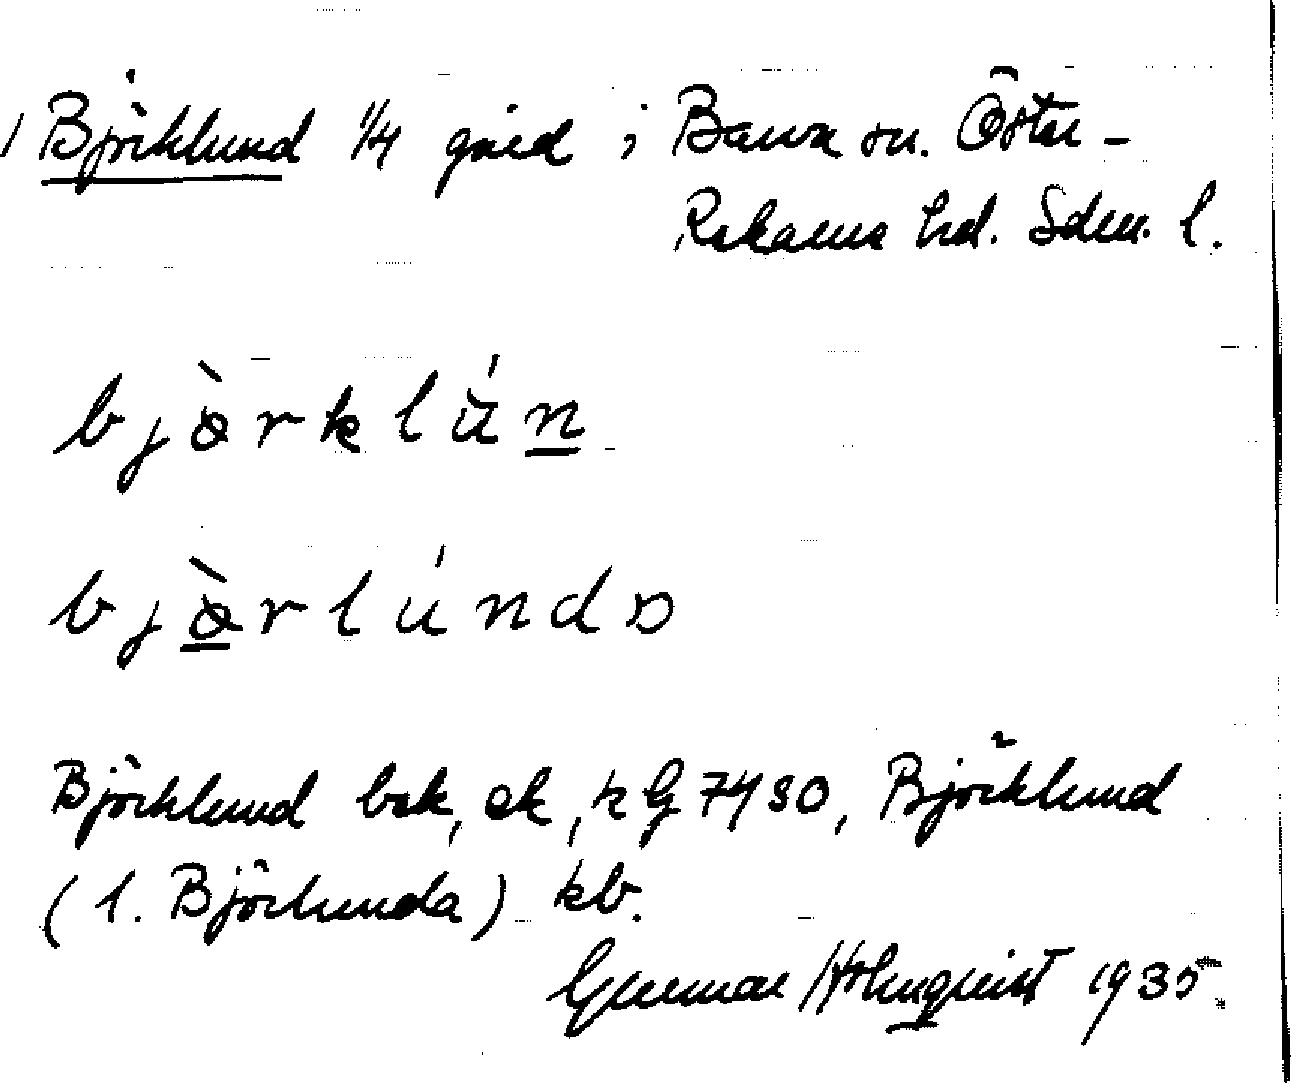 Björklund 1/4 gård i Barva sn. Öster-
Rekarne hd. Sdm. l.
bjòrklún
bjòrlúnda
Björklund bek, ek, k G 7430, Björklund
(l. Björlunda) kb.
Gunnar Holmquist 1935.